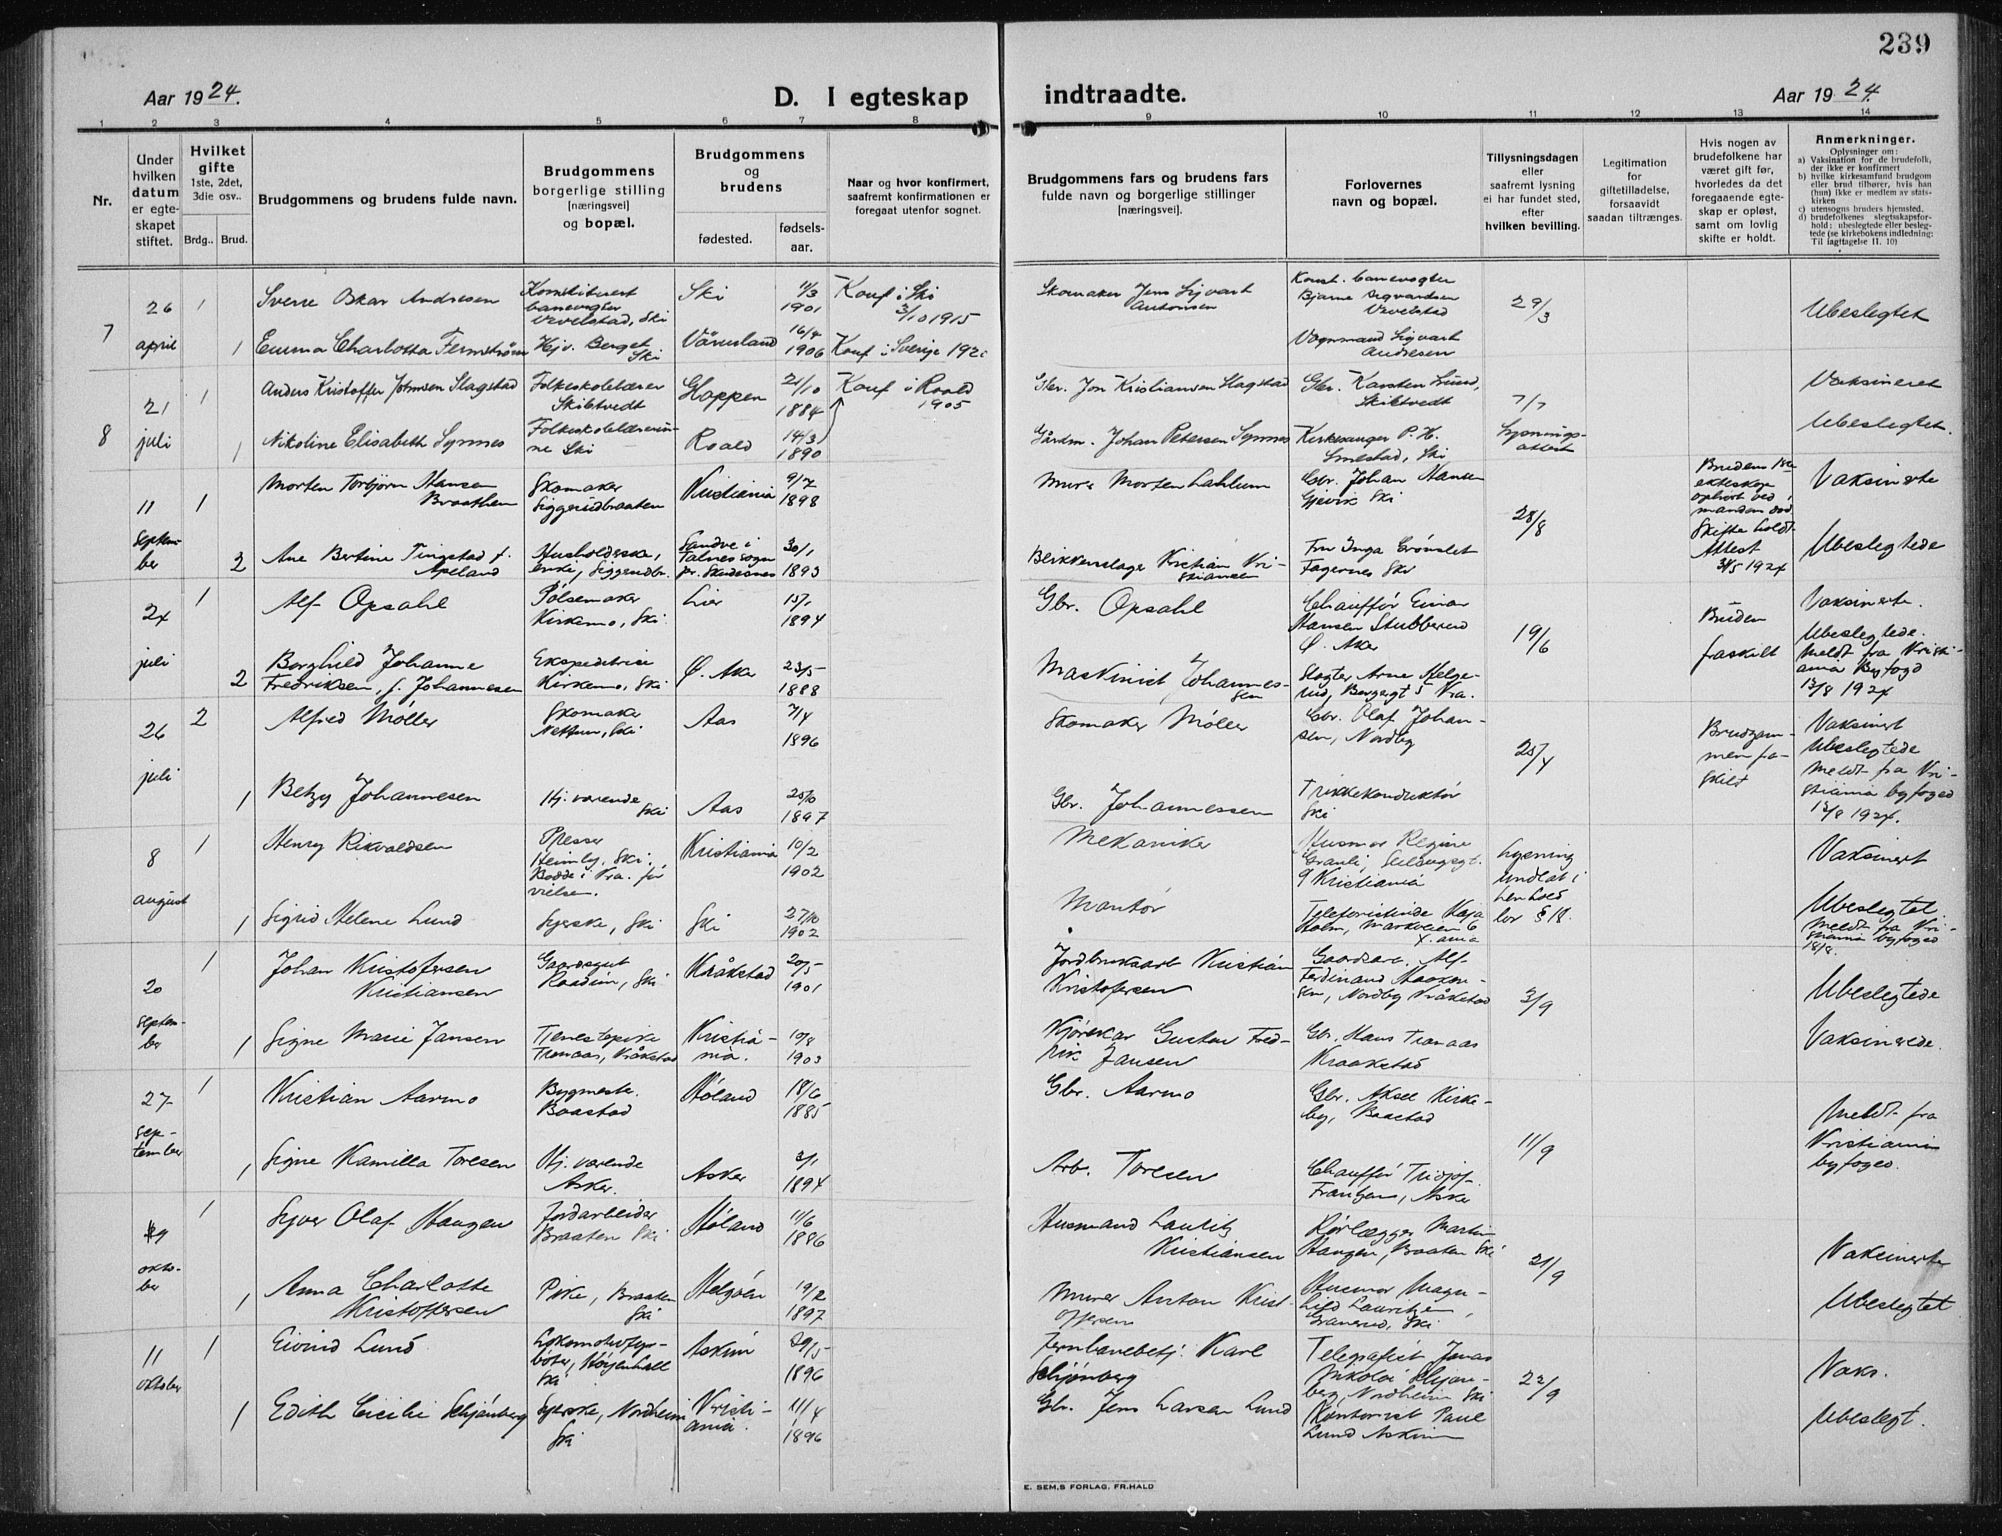 239
Aar 1924.
D. I egteskap indtraadte.
Aar 1924.
1 2 3 4 5 6 7 8 9 10 11 12 13 14
Nr.
Under hvilken datum er egteskapet stiftet.
Hvilket gifte 1ste, 2det, 3die osv..
Brdg.. Brud.
Brudgommens og brudens fulde navn.
Brudgommens borgerlige stilling [næringsvei] og bopæl.
Brudgommens og brudens
fødested. fødselsaar.
Naar og hvor konfirmert, saafremt konfirmationen er foregaat utenfor sognet.
Brudgommens fars og brudens fars fulde navn og borgerlige stillinger [næringsvei].
Forlovernes navn og bopæl.
Tillysningsdagen eller saafremt lysning ei har fundet sted, efter hvilken bevilling.
Legitimation for giftetilladelse, forsaavidt saadan tiltrænges.
Hvis nogen av brudefolkene har været gift før, hvorledes da det foregaaende egteskap er opløst, samt om lovlig skifte er holdt.
Anmerkninger.
Oplysninger om:
a) Vaksination for de brudefolk, der ikke er konfirmert
b) hvilke kirkesamfund brudgom eller brud tilhører, hvis han (hun) ikke er medlem av statskirken
c) utensogns bruders hjemsted.
d) brudefolkenes slegtsskapsforhold: ubeslegtede eller beslegtede (se kirkebokens indledning: Til iagttagelse II. 10)
7
26 april
1
Sverre Oskar Andresen
Konstituert banevogter Vevelstad, Ski
Ski
11/3 1901
Konf. i Ski 3/10 1915
Skomaker Jens Sigvart Antonsen
Konst. banevogter Bjarne Sigvardsen Vevelstad
29/3
Ubeslegtet
1
Emma Charlotta Fernstrøm
Hjv. Berget Ski
Värmland
16/4 1906
Konf. i Sverige 192
Vognmand Sigvart Andresen
8
21 juli
1
Anders Kristoffer Johnsen Slagstad
Folkeskolelærer Skibtvedt
Hoppen
21/10 1884
Konf. i Roald 1905
Gbr. Jon Kristiansen Slagstad
Gbr. Karsten Lund, Skibtvedt
7/7
Lysnings-attest
Vaksineret
1
Nikoline Elisabeth Synnes
Folkeskolelærerinne Ski
Roald
14/3 1890
Gårdm. Johan Petersen Synnes
Kirkesanger P. H. Smestad, Ski
Ubeslegtet.
11 september
1
Morten Torbjørn Hansen Braathen
Skomaker Siggerudbraaten
Kristiania
9/7 1898
Murer Morten Lahlum
Gbr. Johan Hansen Gjevik Ski
28/8
Brudens 1ste ekteskap ophørt ved manden død Skifte holdt. Attest 31/5 1924
Vaksinerte
2
Ane Bertine Tingstad f. Apeland
Husholderske, enke, Siggerudbr.
Sandve i Falnes sogn pr. Skudesnes
30/1 1893
Blikkenslager Kristian Kristiansen
Fru Inga Grønslet Fagernes Ski
Ubeslegtede
24 juli
1
Alf Opsahl
Pølsemaker Kirkemo, Ski.
Lier
15/1 1894
Gbr. Opsahl
Chauffør Einar Hansen Stubberud Ø. Aker
19/6
Bruden fraskilt
Vaksinerte.
Ubeslegtede.
Meldt fra Kristiania Byfogd 13/8 1924
2
Borghild Johanne Fredriksen, f. Johannesen
Ekspeditrise Kirkemo, Ski
Ø. Aker
23/5 1888
Maskinist Johannessen
Slagter Arne Helgerud, Bergsgt 5 Kra.
26 juli
2
Alfred Møller
Skomaker Nettum, Ski
Aas
7/4 1896
Skomaker Møller
Gbr. Olaf Johansen, Nordby
25/4
Brudgommen fraskilt
Vaksinert
Ubeslegtede
Meldt fra Kristiania byfoged 13/8 1924.
1
Betzy Johannesen
Hj. værende Ski
Aas
25/10 1897
Gbr. Johannessen
Trikkekonduktør Ski
8 august
1
Henry Rikvaldsen
Presser Heimly, Ski. Bodde i Kra. før vielsen.
Kristiania
10/2 1902
Mekaniker
Husmor Regine Granli, Seilduksgt. 9 Kristiania
Lysning undlat i henhold lov § 18.
Vaksinert
1
Sigrid Helene Lund
Syerske, Ski
Ski
27/10 1902
Montør
Telefonistinde Kaja Holm, Markveien 6
Ubeslegtet.
Meldt fra Kristiania byfoged 18/8.
20 september
1
Johan Kristofersen Kristiansen
Gaardsgut Raadim, Ski
Kråkstad
20/5 1901
Jordbruksarb Kristian Kristofersen
Gaardsarb. Alf Ferdinand Haakonsen, Nordby Kråkstad
3/9
Ubeslegtede
1
Signe Marie Jansen
Tjenestepike Tranaas, Kråkstad
Kristiania.
10/8 1903
Kjørekar Gustav Fredrik Jansen
Gbr. Hans Tranaas Kraakstad
Vaksinerede.
27 september
1
Kristian Aarmo
Bygmester. Baastad
Høland
18/6 1885
Gbr. Aarmo
Gbr. Aksel Kirkeby, Baastad
11/9
Meldt fra Kristiania byfoged.
1
Signe Kamilla Toresen
Hj. værende Asker.
Asker
2/1 1894
Arb. Toresen
Chauffør Tridjof Frantzen, Asker
9 oktober
1
Syver Olaf Haugen
Jordarbeider Braaten Ski
Høland
11/6 1886
Husmand Lauritz Kristiansen
Rørlægger Martin Haugen, Braaten Ski
21/9
Vaksinerte
1
Anna Charlotte Kristoffersen
Pike, Braaten Ski
Helgøen
19/2 1897
Murer Anton Kristoffersen
Husmor Magnhild Lauritzen, Granerud, Ski
Ubeslegtet
11 oktober
1
Eivind Lund
Lokomotivfyrbøter, Høyenhall Ski
Askim
29/5 1896
Jernbanebetj. Karl Schjønberg
Telegrafist Jonas Nikolai Schjønberg, Nordheim Ski
22/9
Vaks.
1
Edith Cicilie Schjønberg
Syerske, Nordheim Ski
Kristiania.
11/4 1896
Gbr. Jens Larsen Lund
Kontorist Paul Lund Askim
Ubeslegt.
E. SEM,S FORLAG, FR.HALD